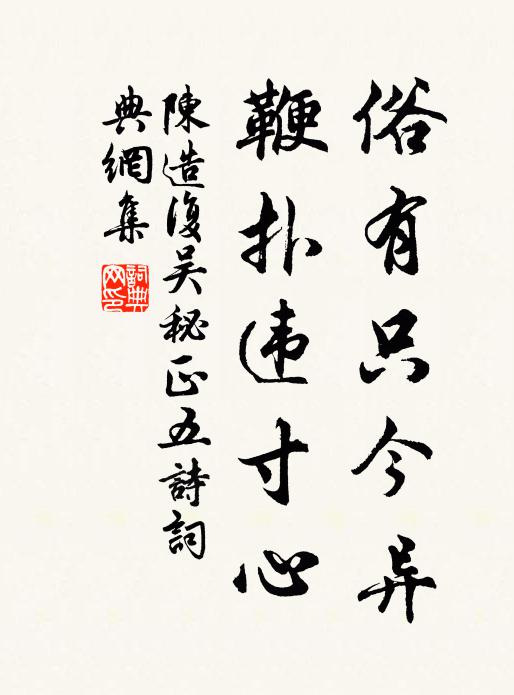 俗有只今异
鞭扑违寸心
陳造復吴秘正五詩詞
典網集
詞典网印